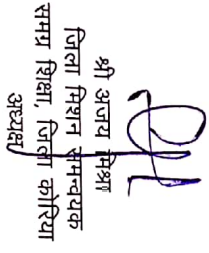 श्री अजय मिश्रा
जिला मिशन समन्वयक
समग्र शिक्षा, जिला कोरिया
अध्यक्ष